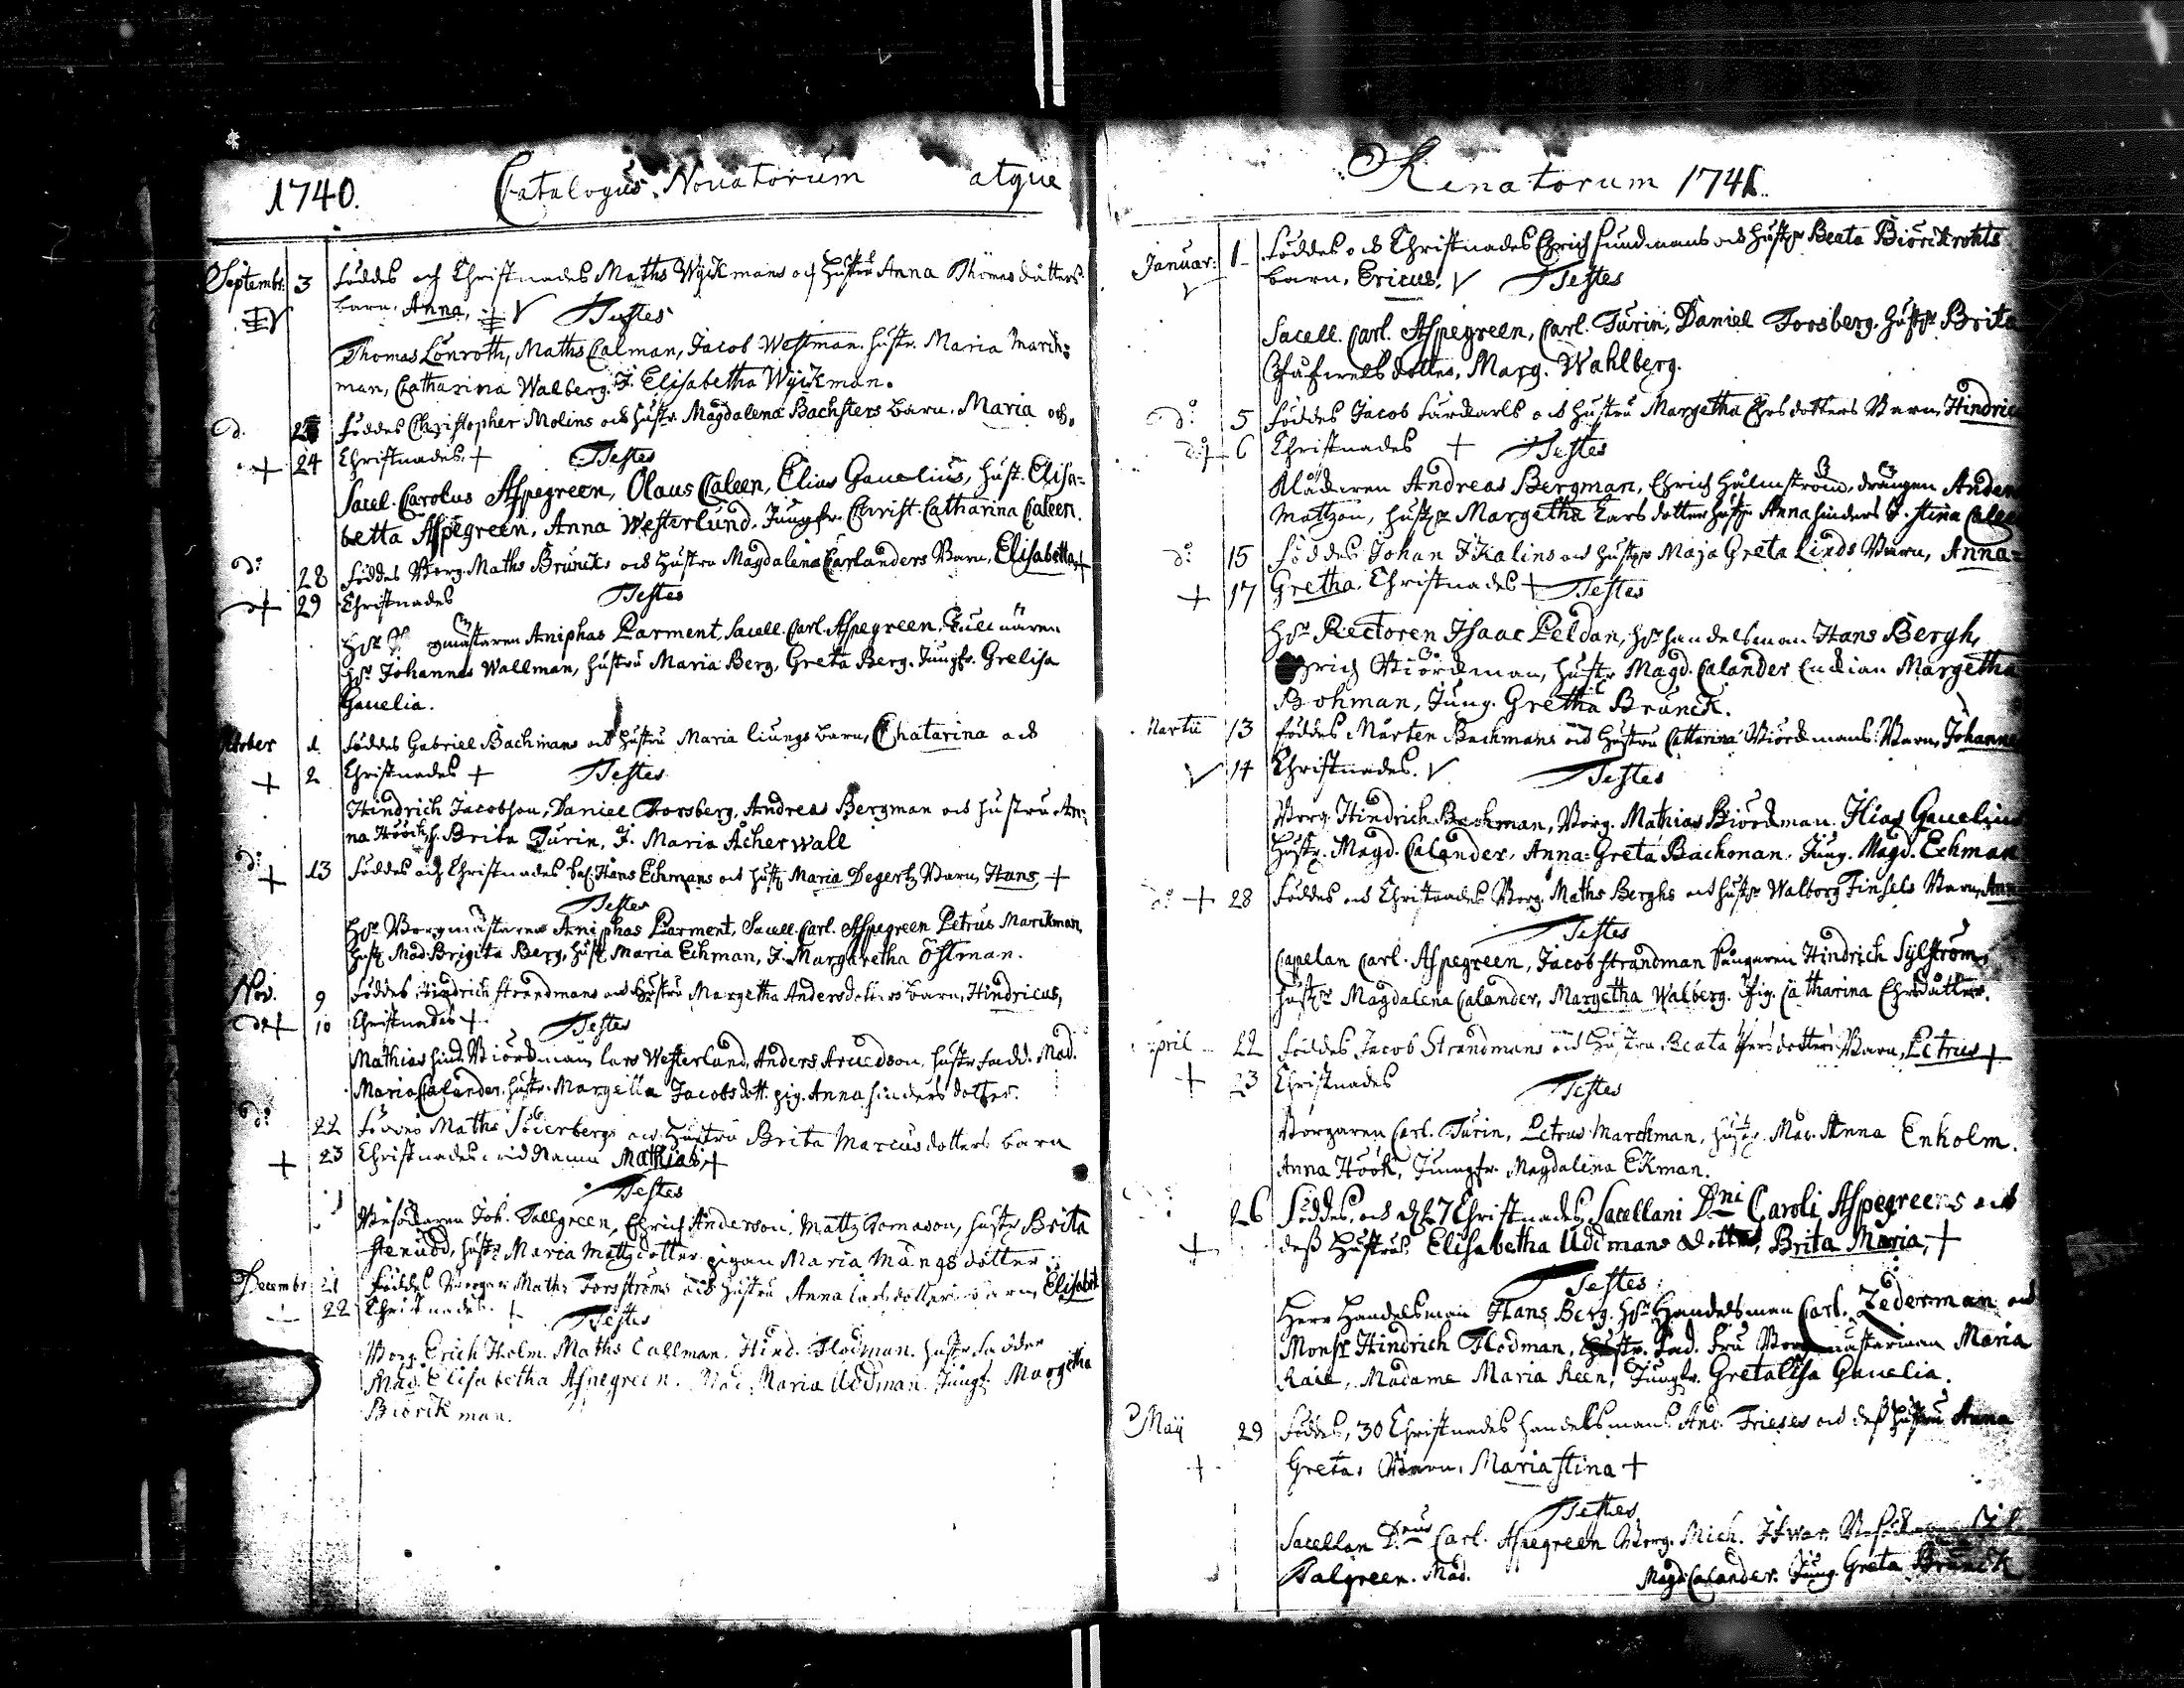 1740. Catalogus Nouatorum atque
Septembr: 3 Föddes och Christnades Maths Wÿckmans och Hustru Anna Thomasdåtters
barn, Anna, Testes
Thomas Lönroth, Maths Calman, Jacob Westman. hustr. Maria Marck:
man, Catharina Walberg. J. Elisabetha Wÿckman.
d. föddes Christopher Molins och hustr. Magdalena Bachsters barn. Maria och.
+ 24 Christnades + Testes
Sacel. Carolus Aspegreen, Olaus Caleen, Elias Gauelius, hust. Elisa=
betta Aspegreen, Anna Westerlund. Jungfr. Christ. Catharina Caleen.
d:o 28 föddes Borg. Maths Bruncks och hustru Magdalena Carlanders Barn, Elisabetta +
+ 29 Christnades Testes
Hr gmästaren Aniphas Parment, Sacell. Carl. Aspegreen,
Hr Johannes Wallman, hustru Maria Berg, Greta Berg. Jungfr. Grelisa
Gauelia.
ctober 1. föddes Gabriel Bachmans och hustru Maria liungs barn, Chatarina och
+ 2 Christnades + Testes
Hindrich Jacobson, Daniel Forsberg, Andreas Bergman och hustru An:
na Höök, h. Brita Turin, J. Maria Åcherwall
d:o + 13 föddes och Christnades Hans Echmans och hust. Maria Degertz Barn, Hans +
Testes
Hr Borgmästaren Aniphas Parment, Sacell. Carl. Aspegreen Petrus Marckman,
hust. Mad. Brigita Berg, hust. Maria Echman, J. Margaretha Östman.
Nov. 9 föddes Hindrich Strandmans och hustru Margetha Andersdotters barn, Hindricus,
d:o + 10 Christnades + Testes
Mathias hind. Biörckman, lars Westerlund, Anders Aruedson, hustr. Mad.
Maria Calander, hustr. Margetta Jacobsdott. pig. Anna hindersdotter.
d:o 22 föddes Maths Söderbergs och hustru Brita Marcusdotters barn
+ 23 Christnades, vid Namn Mathias, +
Testes
Joh. Tallgreen, Ehrich Anderson, Matts Tomason, hustr Brita
Stenudd, hustr Maria Mattzdotter pigan Maria Mångsdotter
Decembr 21 föddes Maths Forsströms och hustru Anna larsdotters barn, Elisabet
22 Christnades. + Testes
Borg. Erich Holm. Maths Callman. Hind. Flodman. hustr
Mad. Elisabetha Aspegreen. Mad. Maria Uddman. Jungf. Margetha
Biörckman.
Renatorum 1741.
Januar: 1 föddes och Christnades Ehrich Sundmans och hustr Beata Biörckroths
barn, Ericus, Testes
Sacell. Carl. Aspegreen, Carl. Turin, Daniel Forsberg, hustr Brita
dotter, Marg. Wahlberg.
d:o 5 föddes Jacob och hustru Margetha Ehrsdotters Barn, Hindric
d:o + 6 Christnades + Testes
Andreas Bergman, Ehrich Hulmström, drängen Anders
Mattzon, hustr Margetha Larsdotter hustr Anna hinders J. Stina Calee
d:o 15 föddes Johan och hustr Maja Greta Linds Barn, Anna=
+ 17 Gretha, Christnades + Testes
Hr Rectoren Isaac Peldan, Hr handelsman Hans Bergh,
Ehrich Biörckman, hustr Magd. Calander Enckian Margetha
Bohman, Jung. Gretha Brunck.
Martii 13 föddes Mårten Bachmans och hustru Cattarina Biörckmans Barn, Johanne
14 Christnades. Testes
Borg. Hindrich Bachman, Borg. Mathias Biörckman. Elias Gauelius
hustr. Magd. Calander, Anna-Greta Bachman. Jung. Magd. Echman
d:o + 28 föddes och Christnades Borg. Maths Berghs och hustr Walborg Finsels Barn, Ann
Testes
Capelan Carl. Aspegreen, Jacob Strandman Hindrich Sylström,
hustr Magdalena Calander, Margetha Walberg. Pig. Catharina Ehrsdåtter.
pril 22 föddes Jacob Strandmans och hustru Beata Barn, Petrus +
+ 23 Christnades Testes
Borgaren Carl. Turin, Petrus Marckman, hustr. Mad. Anna Enholm.
Anna Höök, Jungfr. Magdalena Ekman.
26 Föddes, och d. 27 Christnades, Sacellani Dni Caroli Aspegreens och
+ dess Hustrus Elisabetha Uddmans dotter, Brita Maria, +
Testes
Herr Handelsman Hans Berg. Hr Handelsman Carl. Zederman och
Monsr Hindrich Flodman, Fru Borgmästarinan Maria
Madame Maria Keen, Jungfr. Gretalisa Gauelia.
Maij 29 föddes, 30 Christnades handelsmans And. Frieses och dess hustru Anna
+ Gretas Barn, Maria Stina +
Testes
Sacellan Dnus Carl. Aspegreen Borg. Mich.
Talgreen. Mad. Magd. Calander. Jung. Greta Brunck